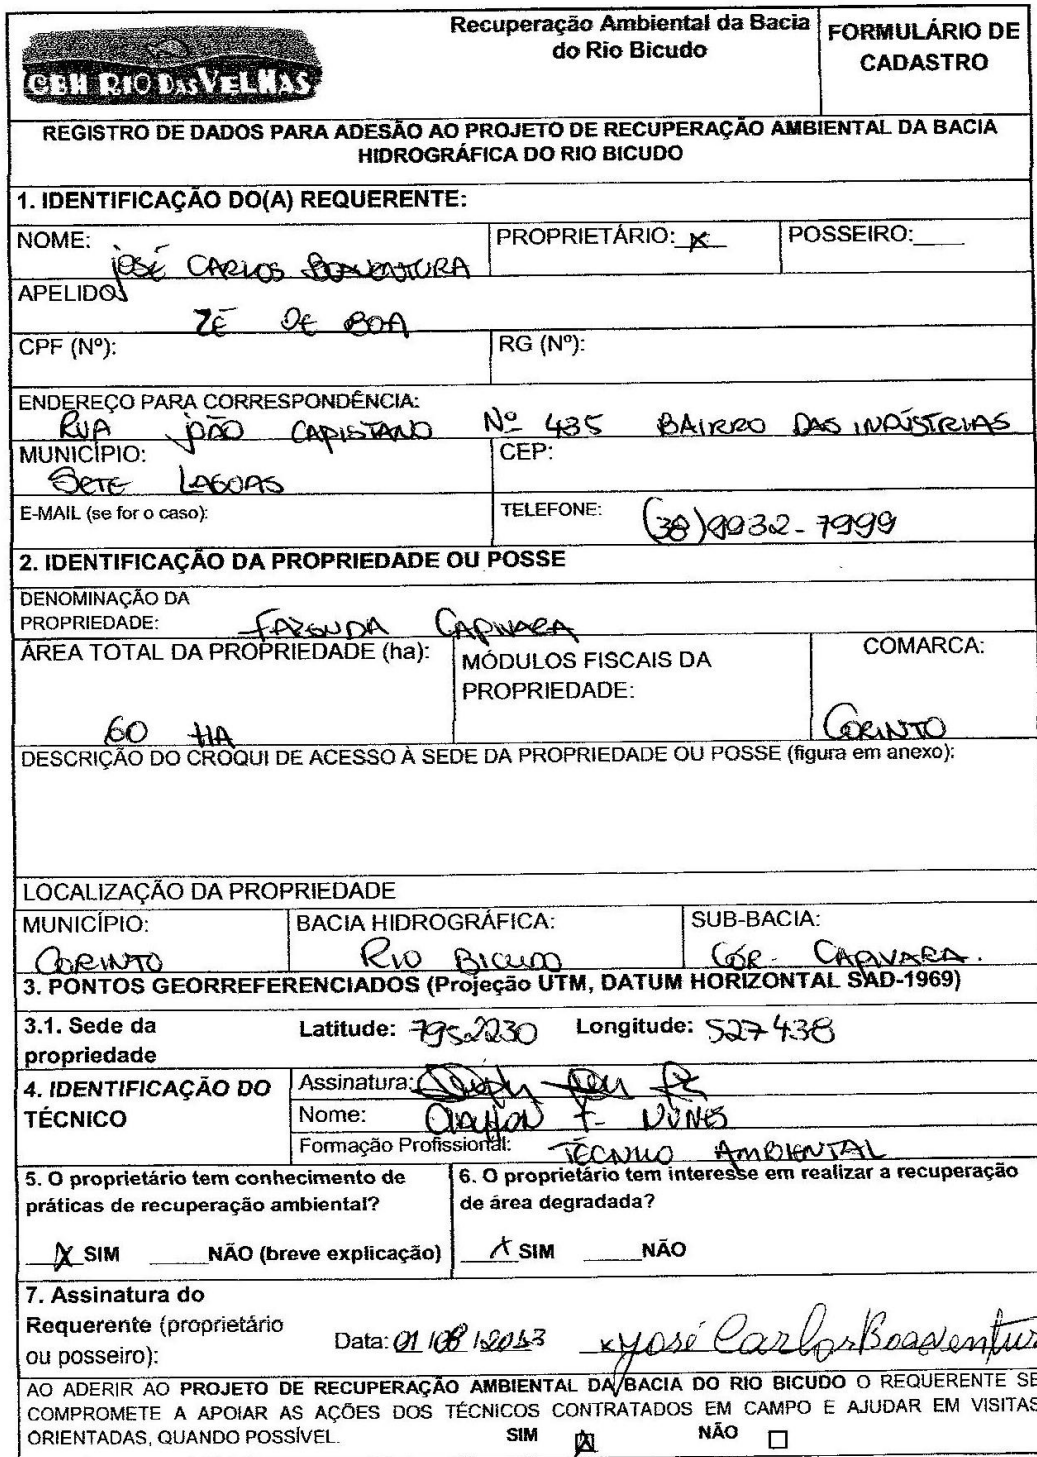 CBH RIO DAS VELHAS
Recuperação Ambiental da Bacia
do Rio Bicudo
FORMULÁRIO DE
CADASTRO
REGISTRO DE DADOS PARA ADESÃO AO PROJETO DE RECUPERAÇÃO AMBIENTAL DA BACIA
HIDROGRÁFICA DO RIO BICUDO
1. IDENTIFICAÇÃO DO(A) REQUERENTE:
NOME: JOSÉ CARLOS BOAVENTURA
PROPRIETÁRIO: X
POSSEIRO:____
APELIDO: ZÉ DE BOA
CPF (Nº):
RG (Nº):
ENDEREÇO PARA CORRESPONDÊNCIA:
RUA JOÃO CAPISTANO Nº 435 BAIRRO DAS INDÚSTRIAS
MUNICÍPIO: SETE LAGOAS
CEP:
E-MAIL (se for o caso):
TELEFONE: (38)9932-7999
2. IDENTIFICAÇÃO DA PROPRIEDADE OU POSSE
DENOMINAÇÃO DA
PROPRIEDADE: FAZENDA CAPIVARA
ÁREA TOTAL DA PROPRIEDADE (ha):
60 HA
MÓDULOS FISCAIS DA
PROPRIEDADE:
COMARCA:
CORINTO
DESCRIÇÃO DO CROQUI DE ACESSO À SEDE DA PROPRIEDADE OU POSSE (figura em anexo):
LOCALIZAÇÃO DA PROPRIEDADE
MUNICÍPIO:
CORINTO
BACIA HIDROGRÁFICA:
RIO BICUDO
SUB-BACIA:
CÓR. CAPIVARA.
3. PONTOS GEORREFERENCIADOS (Projeção UTM, DATUM HORIZONTAL SAD-1969)
3.1. Sede da
propriedade
Latitude: 7952230 Longitude: 527438
4. IDENTIFICAÇÃO DO
TÉCNICO
Assinatura:
Nome: CLAYTON F. NUNES
Formação Profissional: TÉCNICO AMBIENTAL
5. O proprietário tem conhecimento de
práticas de recuperação ambiental?
X SIM ____NÃO (breve explicação)
6. O proprietário tem interesse em realizar a recuperação
de área degradada?
X SIM ____NÃO
7. Assinatura do
Requerente (proprietário
ou posseiro):
Data: 01/08/2013 x José Carlos Boaventura
AO ADERIR AO PROJETO DE RECUPERAÇÃO AMBIENTAL DA BACIA DO RIO BICUDO O REQUERENTE SE
COMPROMETE A APOIAR AS AÇÕES DOS TÉCNICOS CONTRATADOS EM CAMPO E AJUDAR EM VISITAS
ORIENTADAS, QUANDO POSSÍVEL. SIM ☒ NÃO ☐